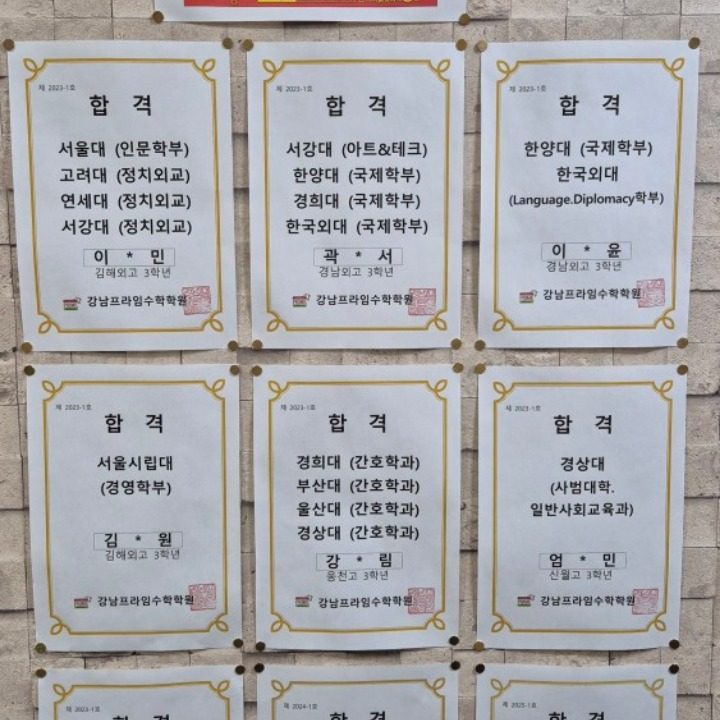 제 2023-1호
합 격
서울대 (인문학부)
고려대 (정치외교)
연세대 (정치외교)
서강대 (정치외교)
이 * 민
김해외고 3학년
강남프라임수학학원
제 2023-1호
합 격
서강대 (아트&테크)
한양대 (국제학부)
경희대 (국제학부)
한국외대 (국제학부)
곽 * 서
경남외고 3학년
강남프라임수학학원
제 2023-1호
합 격
한양대 (국제학부)
한국외대
(Language.Diplomacy학부)
이 * 윤
경남외고 3학년
강남프라임수학학원
제 2023-1호
합 격
서울시립대
(경영학부)
김 * 원
김해외고 3학년
강남프라임수학학원
제 2023-1호
합 격
경희대 (간호학과)
부산대 (간호학과)
울산대 (간호학과)
경상대 (간호학과)
강 * 림
웅천고 3학년
강남프라임수학학원
제 2023-1호
합 격
경상대
(사범대학.
일반사회교육과)
엄 * 민
신월고 3학년
강남프라임수학학원
제 2023-1호
합 격
제 2024-1호
합 격
제 2025-1호
합 격